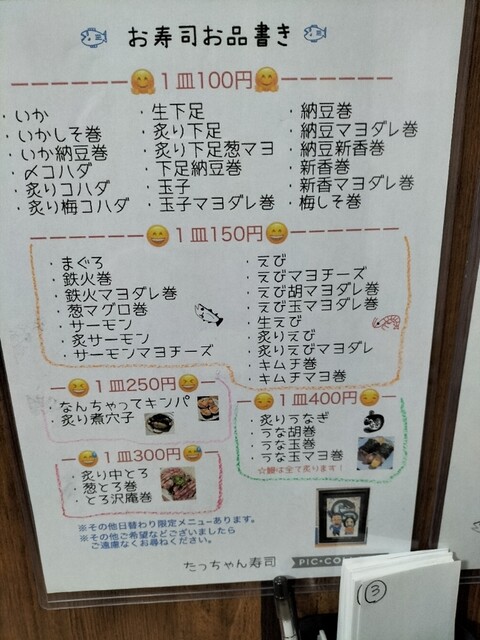 お寿司お品書き
1皿100円
・いか
・いかしそ巻
・いか納豆巻
・〆コハダ
・炙りコハダ
・炙り梅コハダ
・生下足
・炙り下足
・炙り下足葱マヨ
・下足納豆巻
・玉子
・玉子マヨダレ巻
・納豆巻
・納豆マヨダレ巻
・納豆新香巻
・新香巻
・新香マヨダレ巻
・梅しそ巻
1皿150円
・まぐろ
・鉄火巻
・鉄火マヨダレ巻
・葱マグロ巻
・サーモン
・炙サーモン
・サーモンマヨチーズ
・えび
・えびマヨチーズ
・えび胡マヨダレ巻
・えび玉マヨダレ巻
・生えび
・炙りえび
・炙りえびマヨダレ
・キムチ巻
・キムチマヨ巻
1皿250円
・なんちゃってキンパ
・炙り煮穴子
1皿400円
・炙りうなぎ
・うな胡巻
・うな玉巻
・うな玉マヨ巻
☆鰻は全て炙ります!
1皿300円
・炙り中とろ
・葱とろ巻
・とろ沢庵巻
※その他日替わり限定メニューあります。
※その他ご希望などございましたら
ご遠慮なくお尋ねください。
たっちゃん寿司
PIC•CO
③